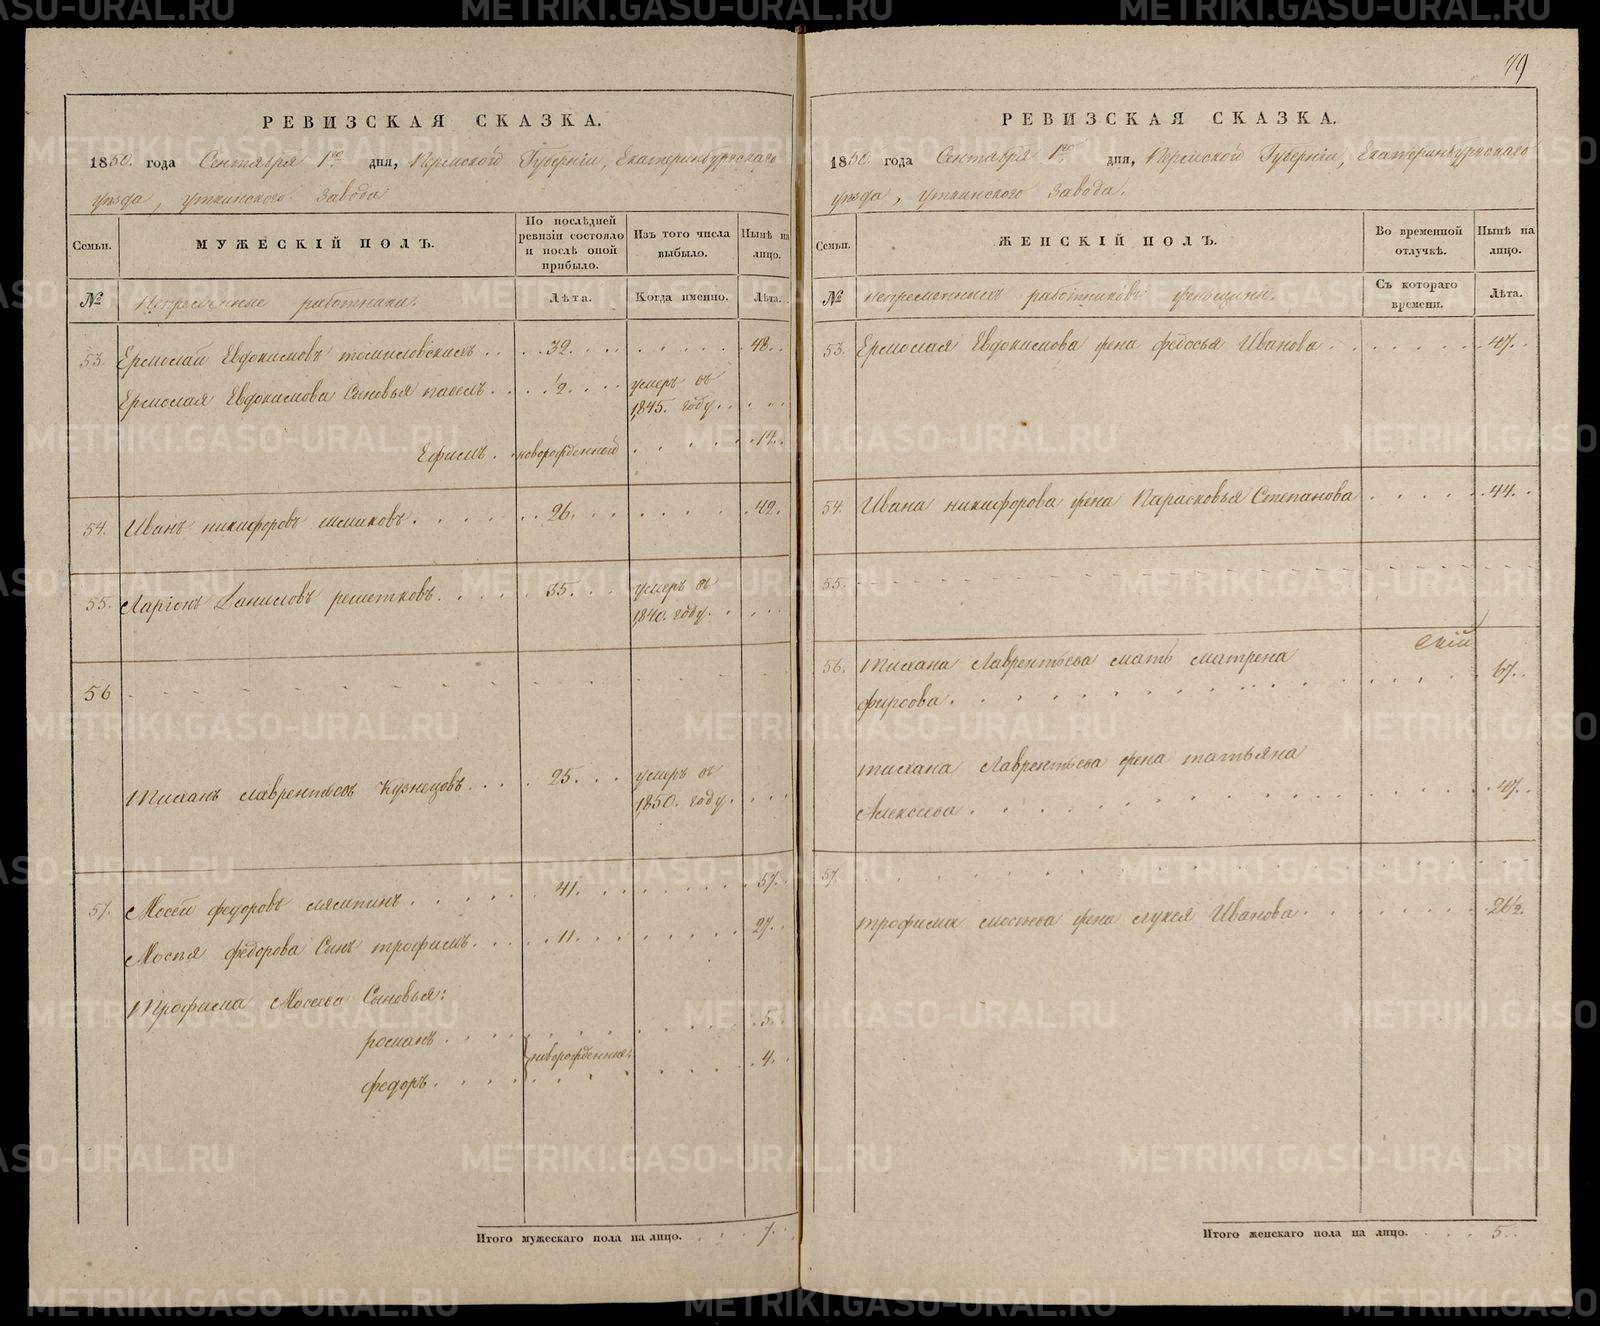 79
РЕВИЗСКАЯ СКАЗКА.
1850. года Сентября 1го дня, Пермской Губерніи, Екатеринбургскаго
уѣзда, уткинскаго завода
Семьи.
МУЖЕСКІЙ ПОЛЪ.
По послѣдней
ревизіи состояло
и послѣ оной
прибыло.
Изъ того числа
выбыло.
Нынѣ на
лицо.
№
Непременные работники.
Лѣта.
Когда именно.
Лѣта.
53. Ермолай Евдокимовъ томиловскихъ . . 32. 48.
Ермолая Евдокимова Сыновья павелъ. ½. умеръ въ
1845. году.
Ефимъ. новорожденный 12.
54. Иванъ никифоровъ 26. 42.
55. Ларіонъ Даниловъ решетковъ. 35. умеръ въ
1840. году.
56
тиханъ лаврентьевъ Кузнецовъ. 25. умеръ въ
1850. году.
57. Мосей федоровъ лямпинъ. 41. 57.
Мосея федорова Сынъ трофимъ. 11. 27.
трофима Мосеева Сыновья:
романъ. 5.
новорожденные.
федоръ. 4.
Итого мужескаго пола на лицо. 7.
РЕВИЗСКАЯ СКАЗКА.
1850. года Сентября 1го дня, Пермской Губерніи, Екатеринбургскаго
уѣзда, уткинскаго завода.
Семьи.
ЖЕНСКІЙ ПОЛЪ.
Во временной
отлучкѣ.
Нынѣ на
лицо.
№
непременныхъ работниковъ женщины.
Съ котораго
времени.
Лѣта.
53. Ермолая Евдокимова жена федосья Иванова. 47.
54. Ивана никифорова жена Парасковья Степанова 44.
55.
56. тихана Лаврентьева мать матрена
фирсова. 67.
тихана Лаврентьева жена татьяна
Алексева. 47.
57.
трофима мосеева жена лукея Иванова. 26½.
Итого женскаго пола на лицо. 5.
METRIKI.GASO-URAL.RU